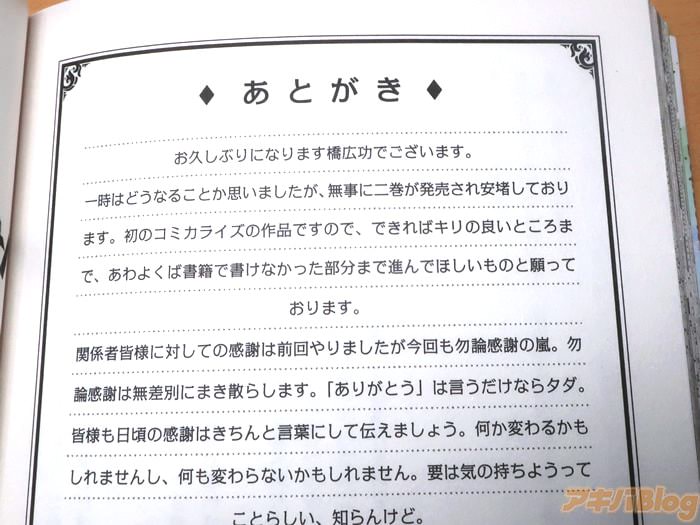 ◆ あとがき ◆
お久しぶりになります橋広功でございます。
一時はどうなることか思いましたが、無事に二巻が発売され安堵しており
ます。初のコミカライズの作品ですので、できればキリの良いところま
で、あわよくば書籍で書けなかった部分まで進んでほしいものと願って
おります。
関係者皆様に対しての感謝は前回やりましたが今回も勿論感謝の嵐。勿
論感謝は無差別にまき散らします。「ありがとう」は言うだけならタダ。
皆様も日頃の感謝はきちんと言葉にして伝えましょう。何か変わるかも
しれませんし、何も変わらないかもしれません。要は気の持ちようって
ことらしい、知らんけど。
アキバBlog